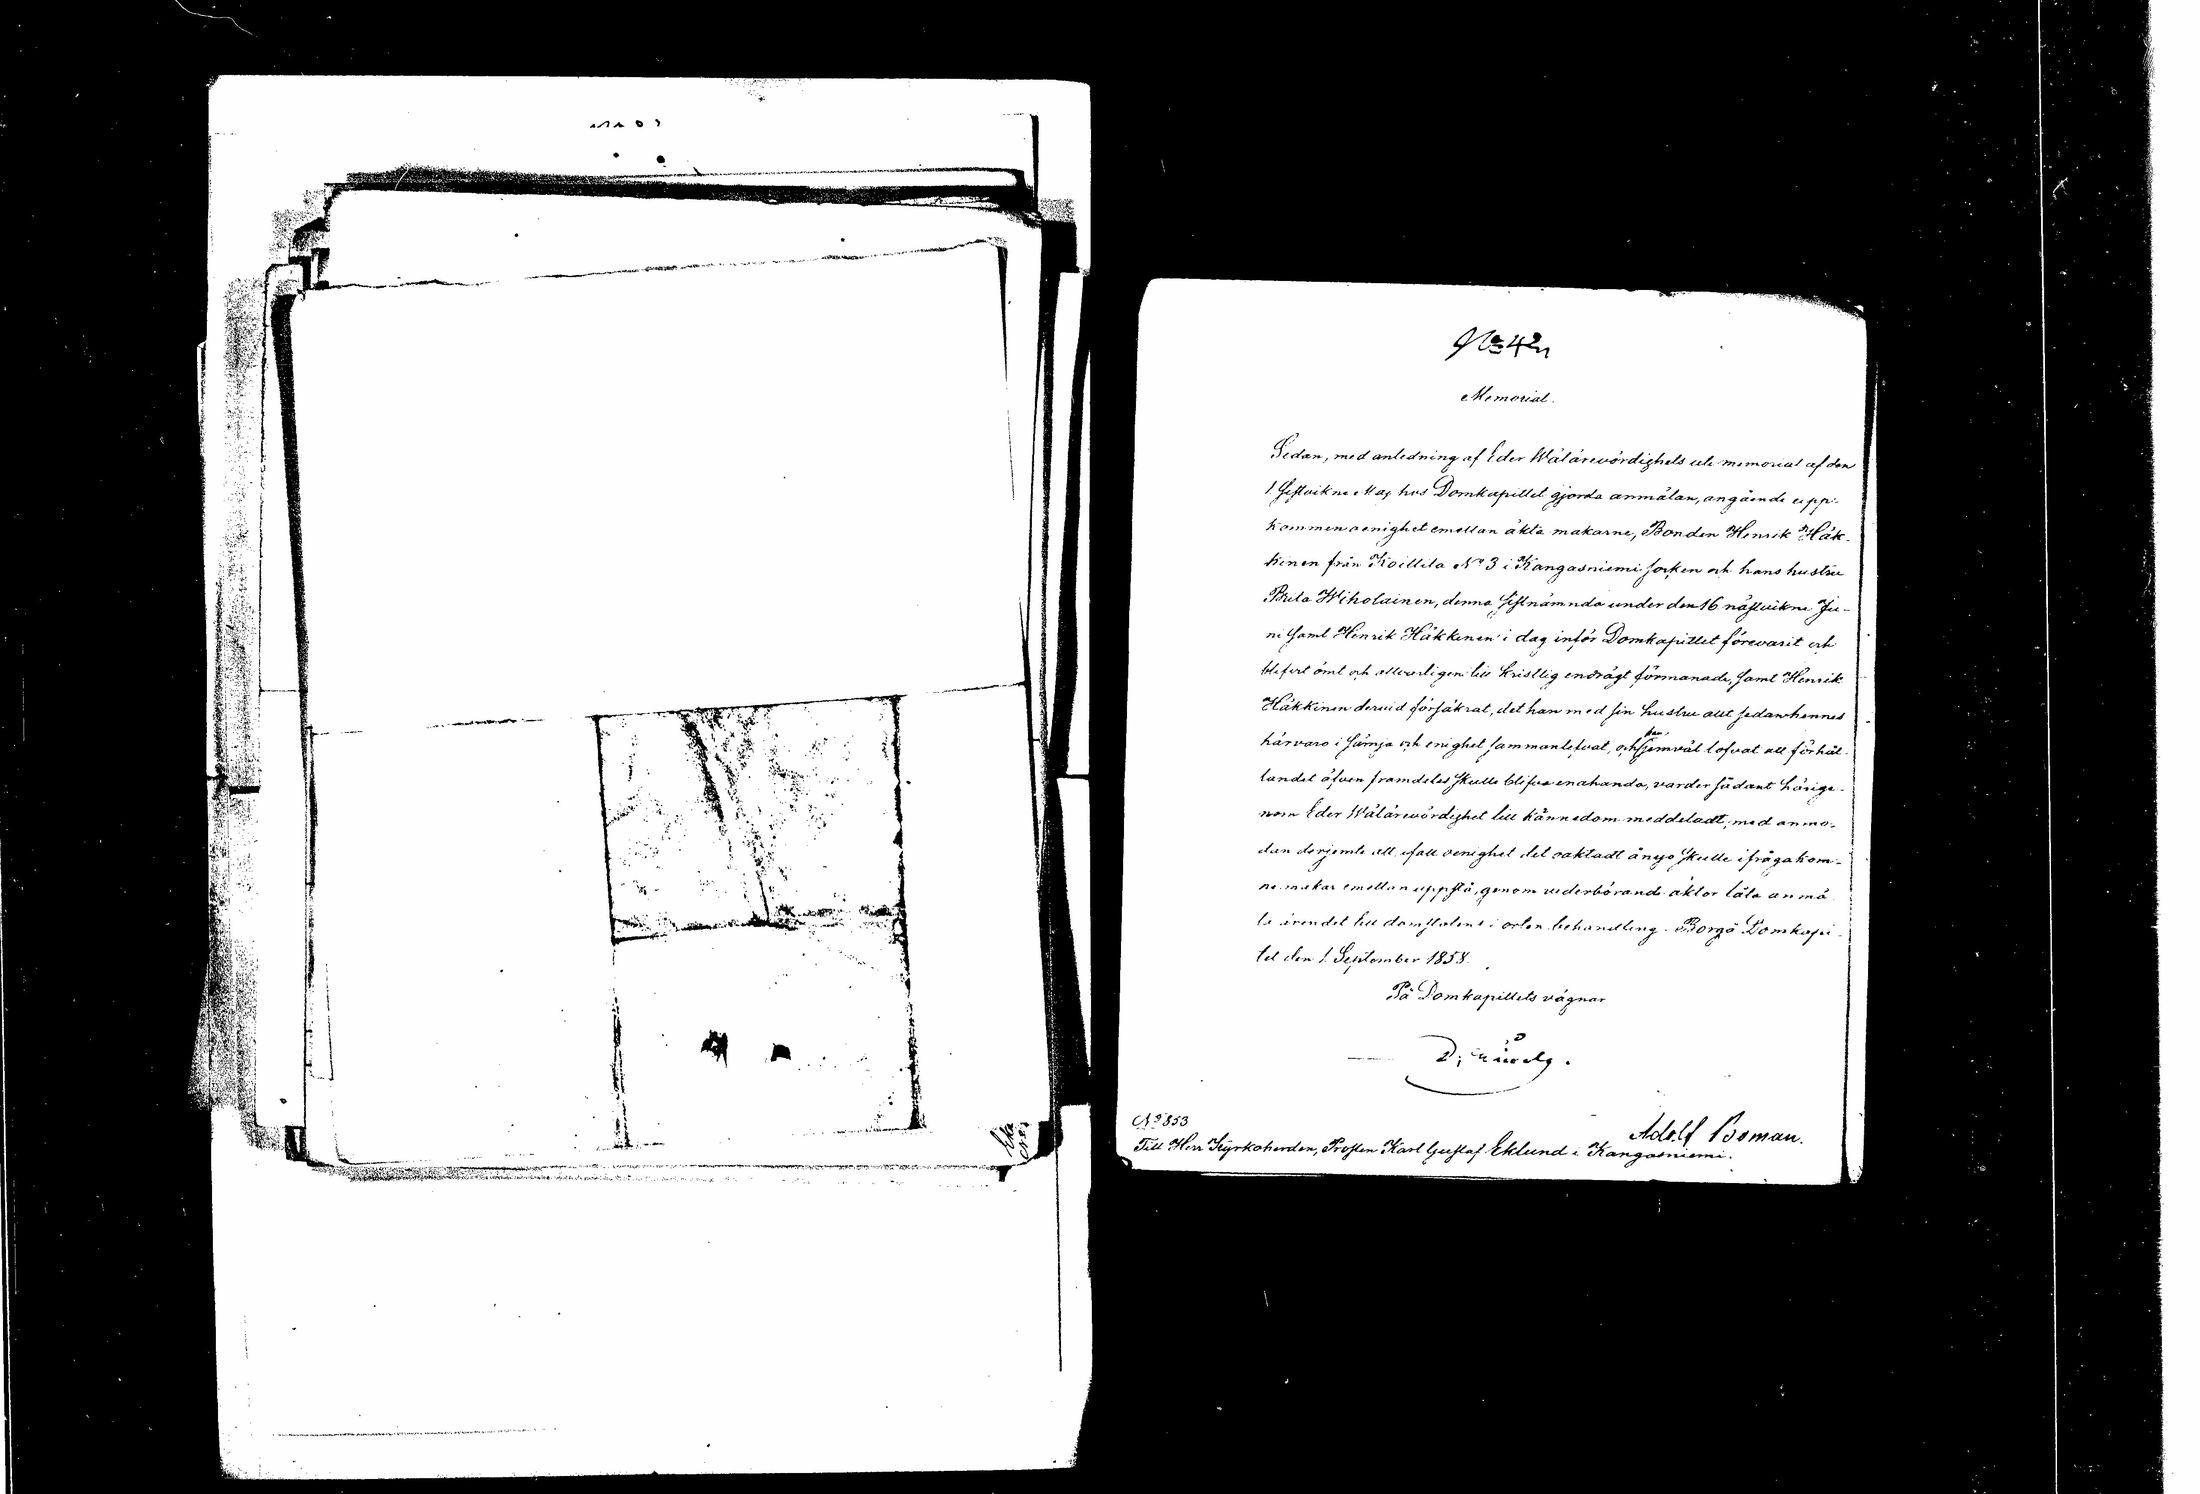 No 42
Memorial.
Sedan, med anledning af Eder Wälärevördighets uti memorial af den
1 sistvikne Maj hos Domkapitlet gjorda anmälan, angående upp-
kommen oenighet emellan äkta makarne, Bonden Henrik Häk-
kinen från Koittila No 3 i Kangasniemi socken och hans hustru
Brita Wiholainen, denna sistnämnda under den 16 nästvikne Ju-
ni samt Henrik Häkkinen i dag inför Domkapitlet förevarit och
blifvit ömt och allvarligen till kristlig endrägt förmanade, samt Henrik
Häkkinen dervid försäkrat, det han med sin hustru allt sedan hennes
härvaro i sämja och enighet sammanlefvat, och jemväl lofvat att förhål-
landet äfven framdeles skulle blifva enahanda, varder sådant härige-
nom Eder Wälärevördighet till kännedom meddeladt, med anmo-
dan derjemte att, ifall oenighet det oaktadt ånyo skulle ifrågakom-
ne makar emellan uppstå, genom vederbörande aktor låta anmä-
la ärendet till domstolens i orten behandling. Borgå Domkapi-
tel den 1 September 1858.
På Domkapitlets vägnar
Adolf Boman.
No 853
Till Herr Kyrkoherden, Prosten Karl Gustaf Eklund i Kangasniemi.